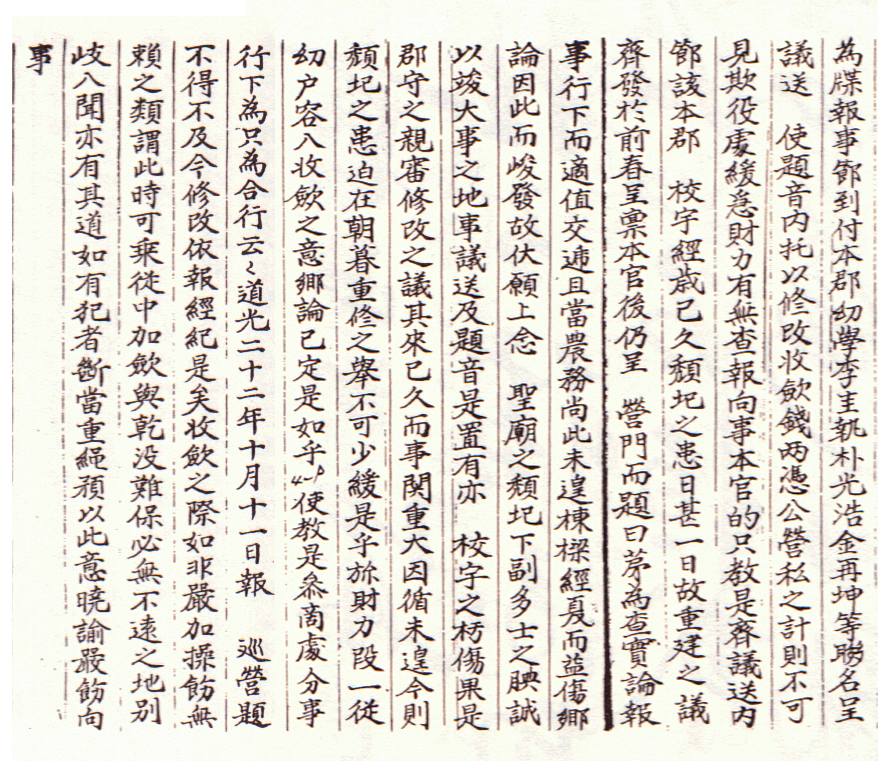 為牒報事節到付本郡幼學李圭執朴光浩金再坤等聯名呈
議送 使題音內托以修改收斂錢兩憑公營私之計則不可
見欺役處緩急財力有無查報向事本官的只教是齊議送內
節該本郡 校宇經歲已久頹圮之患日甚一日故重建之議
齊發於前春呈稟本官後仍呈 營門而題曰茅為查實論報
事行下而適值交遞且當農務尚此未遑棟樑經夏而益傷鄉
論因此而峻發故伏願上念 聖廟之頹圮下副多士之腆誠
以竣大事之地事議送及題音是置有亦 校宇之朽傷果是
郡守之親審修改之議其來已久而事関重大因循未遑今則
頹圮之患迫在朝暮重修之舉不可少緩是乎旀財力段一從
幼户容入收斂之意鄉論已定是如乎 使教是叅商處分事
行下為只為合行云〻道光二十二年十月十一日報 巡營題
不得不及今修改依報經紀是矣收斂之際如非嚴加操飭無
賴之類謂此時可乘從中加斂與乾没難保必無不遠之地別
歧入聞亦有其道如有犯者斷當重繩預以此意曉諭嚴飭向
事